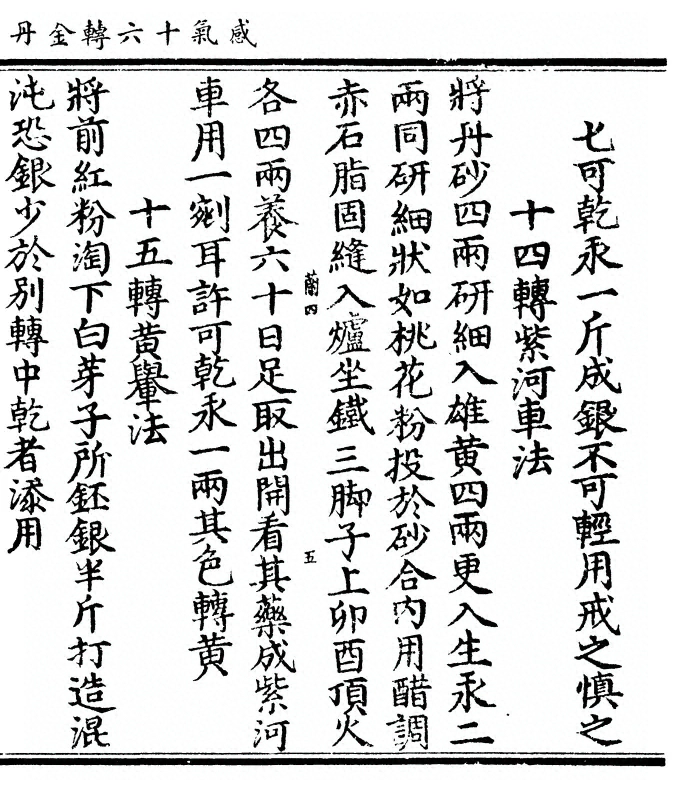 感氣十六轉金丹
七可乾汞一斤成銀不可輕用戒之慎之
十四轉紫河車法
將丹砂四兩研細入雄黄四兩更入生汞二
兩同研細狀如桃花粉投於砂合内用醋調
赤石脂固縫入爐坐鐵三脚子上卯酉頂火
蘭四
五
各四兩養六十日足取出開看其藥成紫河
車用一劑耳許可乾汞一兩其色轉黄
十五轉黄轝法
將前紅粉淘下白芽子所鉟銀半斤打造混
沌恐銀少於别轉中乾者添用